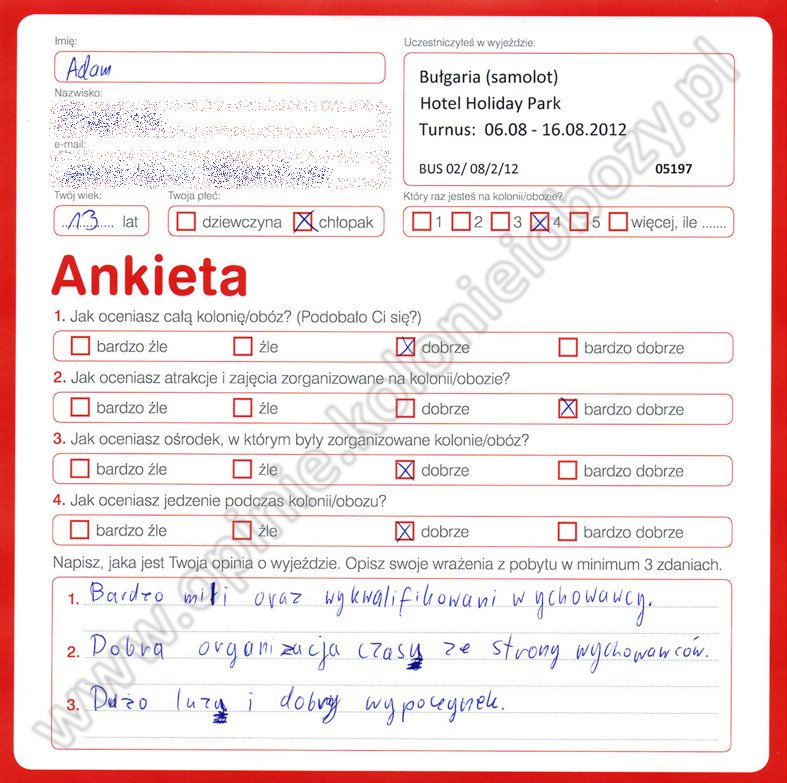 Imię:
Adam
Nazwisko:
e-mail:
Twój wiek:
13 lat
Twoja płeć:
dziewczyna chłopak
Uczestniczyłeś w wyjeździe:
Bułgaria (samolot)
Hotel Holiday Park
Turnus: 06.08 - 16.08.2012
BUS 02/ 08/2/12 05197
Który raz jesteś na kolonii/obozie?
1 2 3 4 5 więcej, ile .......
Ankieta
1. Jak oceniasz całą kolonię/obóz? (Podobało Ci się?)
bardzo źle źle dobrze bardzo dobrze
2. Jak oceniasz atrakcje i zajęcia zorganizowane na kolonii/obozie?
bardzo źle źle dobrze bardzo dobrze
3. Jak oceniasz ośrodek, w którym były zorganizowane kolonie/obóz?
bardzo źle źle dobrze bardzo dobrze
4. Jak oceniasz jedzenie podczas kolonii/obozu?
bardzo źle źle dobrze bardzo dobrze
Napisz, jaka jest Twoja opinia o wyjeździe. Opisz swoje wrażenia z pobytu w minimum 3 zdaniach.
1. Bardzo mili oraz wykwalifikowani wychowawcy.
2. Dobra organizacja czasu ze strony wychowawców.
3. Dużo luzu i dobry wypoczynek.
www.opinie.kolonieiobozy.pl